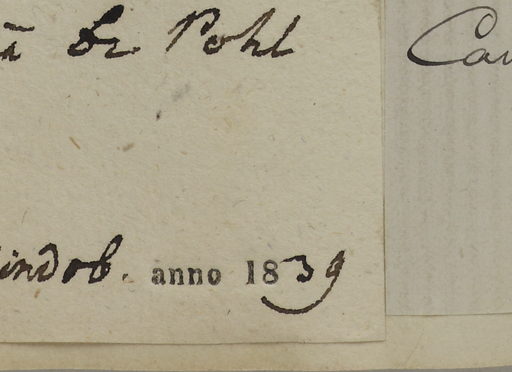 ā Dr Pohl
Cau
indob. anno 1839